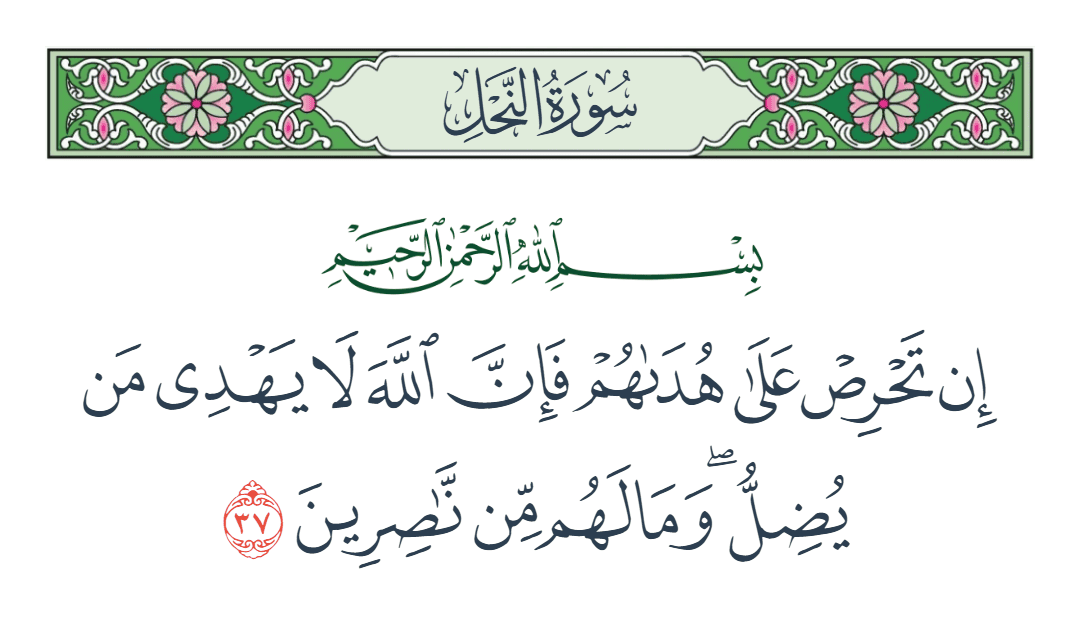 سُورَةُ النَّحۡلِ
بِسۡمِ ٱللَّهِ ٱلرَّحۡمَٰنِ ٱلرَّحِيمِ
إِن تَحۡرِصۡ عَلَىٰ هُدَىٰهُمۡ فَإِنَّ ٱللَّهَ لَا يَهۡدِي مَن
يُضِلُّۖ وَمَا لَهُم مِّن نَّٰصِرِينَ ٣٧